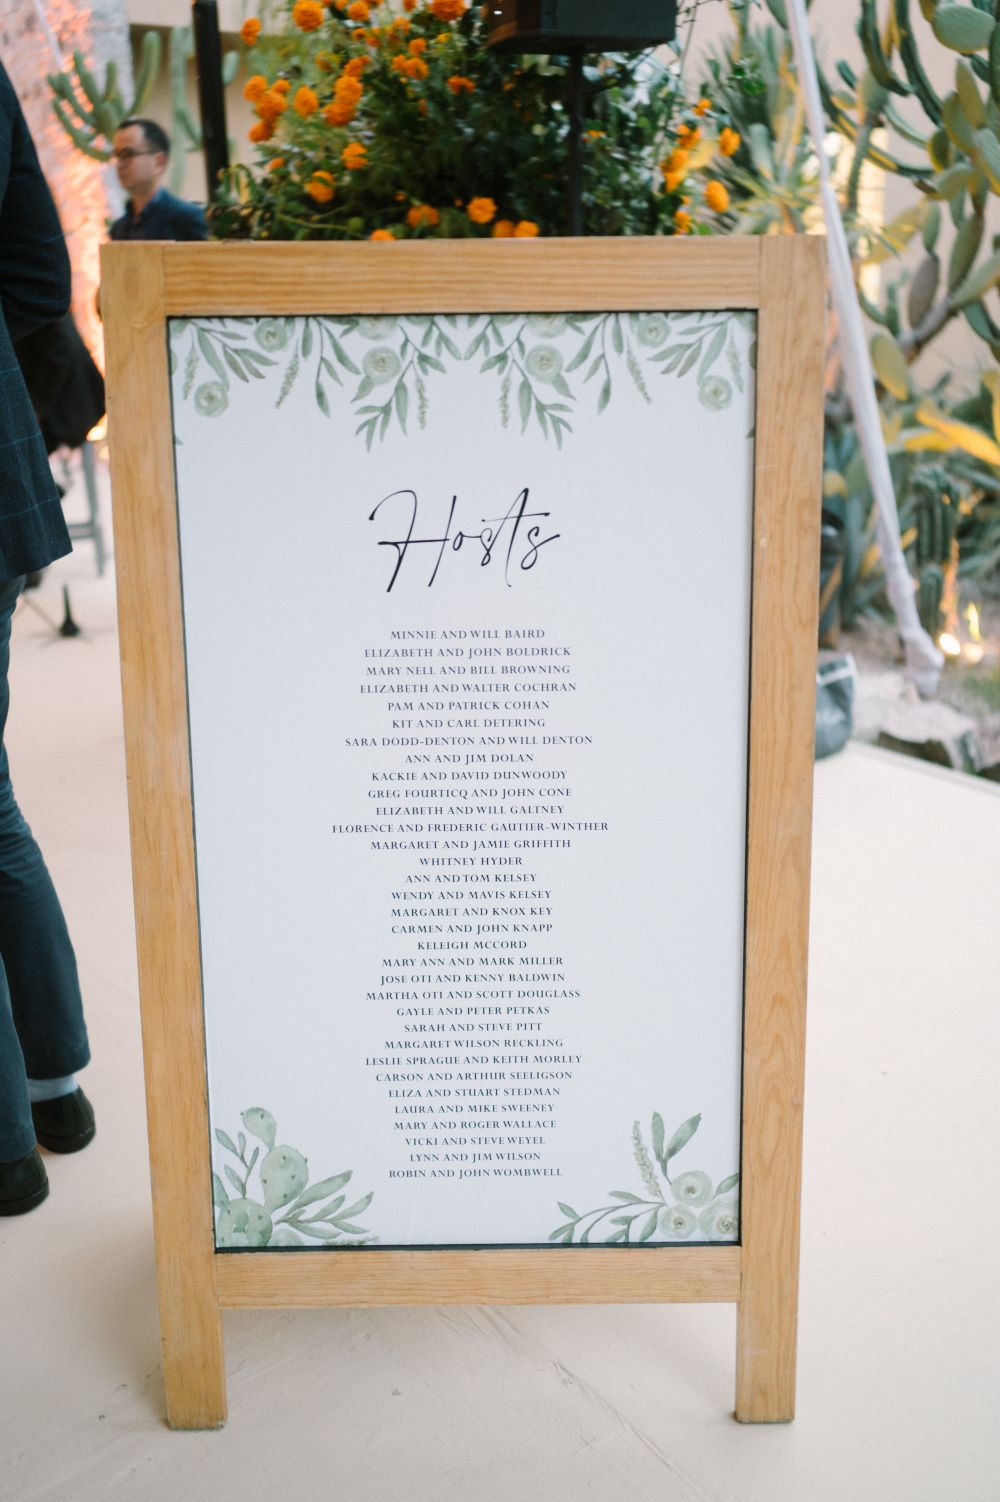 Hosts
MINNIE AND WILL BAIRD
ELIZABETH AND JOHN BOLDRICK
MARY NELL AND BILL BROWNING
ELIZABETH AND WALTER COCHRAN
PAM AND PATRICK COHAN
KIT AND CARL DETERING
SARA DODD-DENTON AND WILL DENTON
ANN AND JIM DOLAN
KACKIE AND DAVID DUNWOODY
GREG FOURTICQ AND JOHN CONE
ELIZABETH AND WILL GALTNEY
FLORENCE AND FREDERIC GAUTIER-WINTHER
MARGARET AND JAMIE GRIFFITH
WHITNEY HYDER
ANN AND TOM KELSEY
WENDY AND MAVIS KELSEY
MARGARET AND KNOX KEY
CARMEN AND JOHN KNAPP
KELEIGH MCCORD
MARY ANN AND MARK MILLER
JOSE OTI AND KENNY BALDWIN
MARTHA OTI AND SCOTT DOUGLASS
GAYLE AND PETER PETKAS
SARAH AND STEVE PITT
MARGARET WILSON RECKLING
LESLIE SPRAGUE AND KEITH MORLEY
CARSON AND ARTHUR SEELIGSON
ELIZA AND STUART STEDMAN
LAURA AND MIKE SWEENEY
MARY AND ROGER WALLACE
VICKI AND STEVE WEYEL
LYNN AND JIM WILSON
ROBIN AND JOHN WOMBWELL